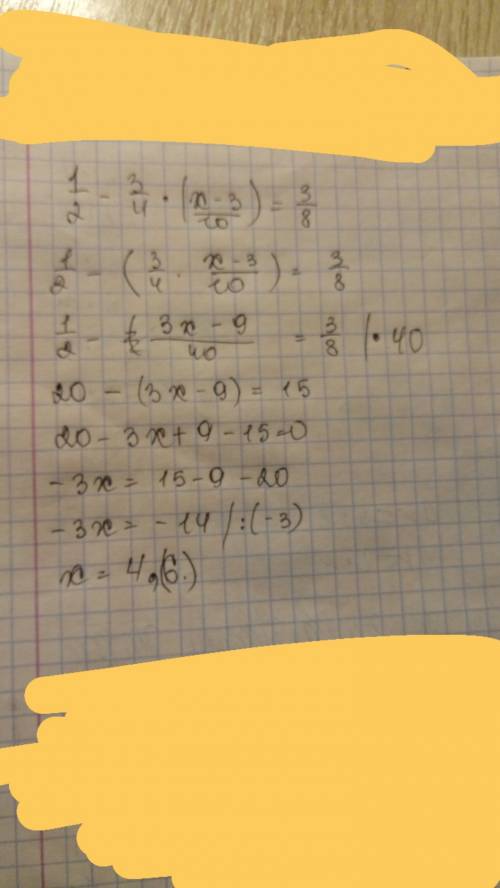 1/2 - 3/4 · (x-3/10) = 3/8
1/2 - (3/4 · x-3/10) = 3/8
1/2 - 3x-9/40 = 3/8 |· 40
20 - (3x-9) = 15
20 - 3x + 9 - 15 = 0
-3x = 15 - 9 - 20
-3x = -14 /:(-3)
x = 4,(6)